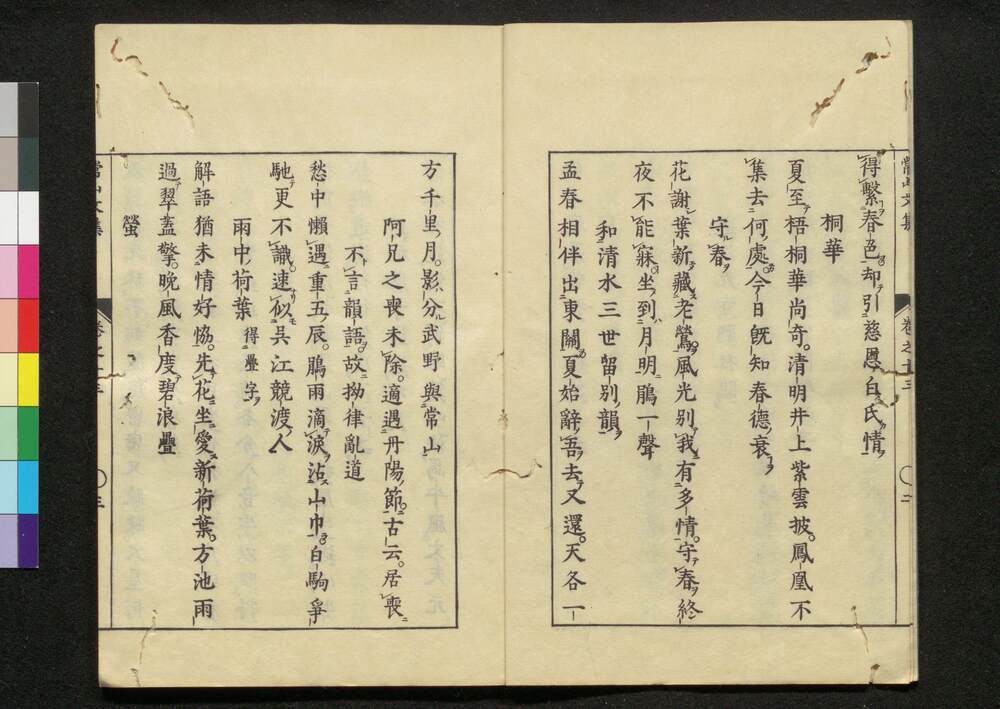 得繫春色却引慈恩白氏情
桐華
夏至梧桐華尚奇清明井上紫雲披鳳凰不
集去何處今日既知春德衰
守春
花謝葉新藏老鶯風光別我有多情守春終
夜不能寐坐到月明鵑一聲
和清水三世留別韻
孟春相伴出東關夏始辭吾去又還天各一
方千里月影分武野與常山
阿兄之喪未除適遇丹陽節古云居喪
不言韻語故拗律亂道
愁中懶遇重五辰鵑雨滴淚沾山巾白駒爭
馳更不識速似吳江競渡人
雨中荷葉 得疊字
解語猶未情好恊先花坐愛新荷葉方池雨
過翠蓋擎晚風香度碧浪疊
螢